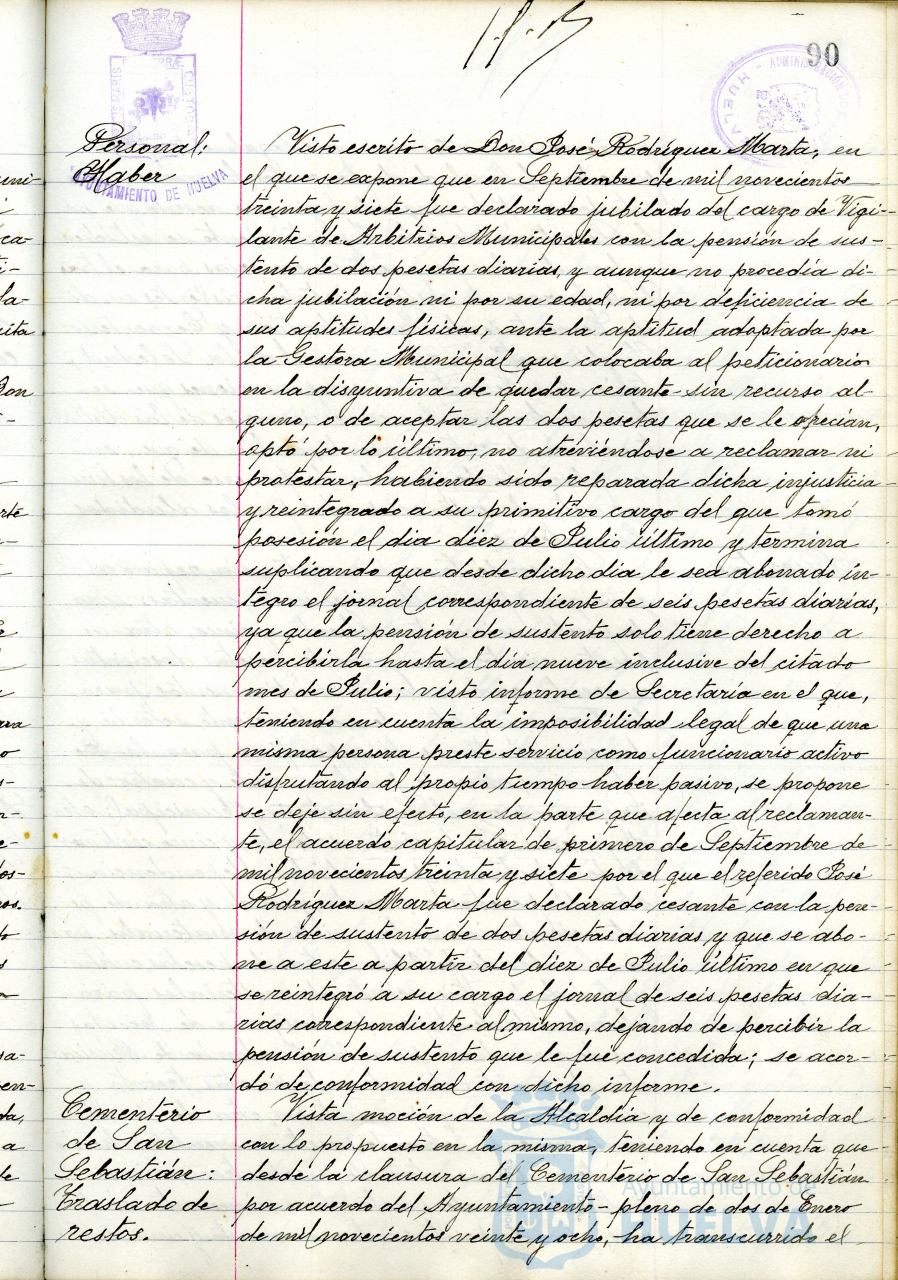 90
Personal:
Haber
AYUNTAMIENTO DE HUELVA
Visto escrito de Don José Rodríguez Marta, en
el que se expone que en Septiembre de mil novecientos
treinta y siete fue declarado jubilado del cargo de Vigi-
lante de Arbitrios Municipales con la pensión de sus-
tento de dos pesetas diarias, y aunque no procedía di-
cha jubilación ni por su edad, ni por deficiencia de
sus aptitudes físicas, ante la aptitud adoptada por
la Gestora Municipal que colocaba al peticionario
en la disyuntiva de quedar cesante sin recurso al-
guno, o de aceptar las dos pesetas que se le ofrecían,
optó por lo último, no atreviéndose a reclamar ni
protestar, habiendo sido reparada dicha injusticia
y reintegrado a su primitivo cargo del que tomó
posesión el dia diez de Julio último y termina
suplicando que desde dicho dia le sea abonado ín-
tegro el jornal correspondiente de seis pesetas diarias,
ya que la pensión de sustento solo tiene derecho a
percibirla hasta el día nueve inclusive del citado
mes de Julio; visto informe de Secretaría en el que,
teniendo en cuenta la imposibilidad legal de que una
misma persona preste servicio como funcionario activo
disfrutando al propio tiempo haber pasivo, se propone
se deje sin efecto, en la parte que afecta al reclaman-
te, el acuerdo capitular de primero de Septiembre de
mil novecientos treinta y siete por el que el referido José
Rodríguez Marta fue declarado cesante con la pen-
sión de sustento de dos pesetas diarias y que se abo-
ne a este a partir del diez de Julio último en que
se reintegró a su cargo el jornal de seis pesetas dia-
rias correspondiente al mismo, dejando de percibir la
pensión de sustento que le fué concedida; se acor-
dó de conformidad con dicho informe.
Cementerio
de San
Sebastián:
Traslado de
restos.
Vista moción de la Alcaldía y de conformidad
con lo propuesto en la misma, teniendo en cuenta que
desde la clausura del Cementerio de San Sebastián
por acuerdo del Ayuntamiento-pleno de dos de Enero
de mil novecientos veinte y ocho, ha transcurrido el
Ayuntamiento de
HUELVA